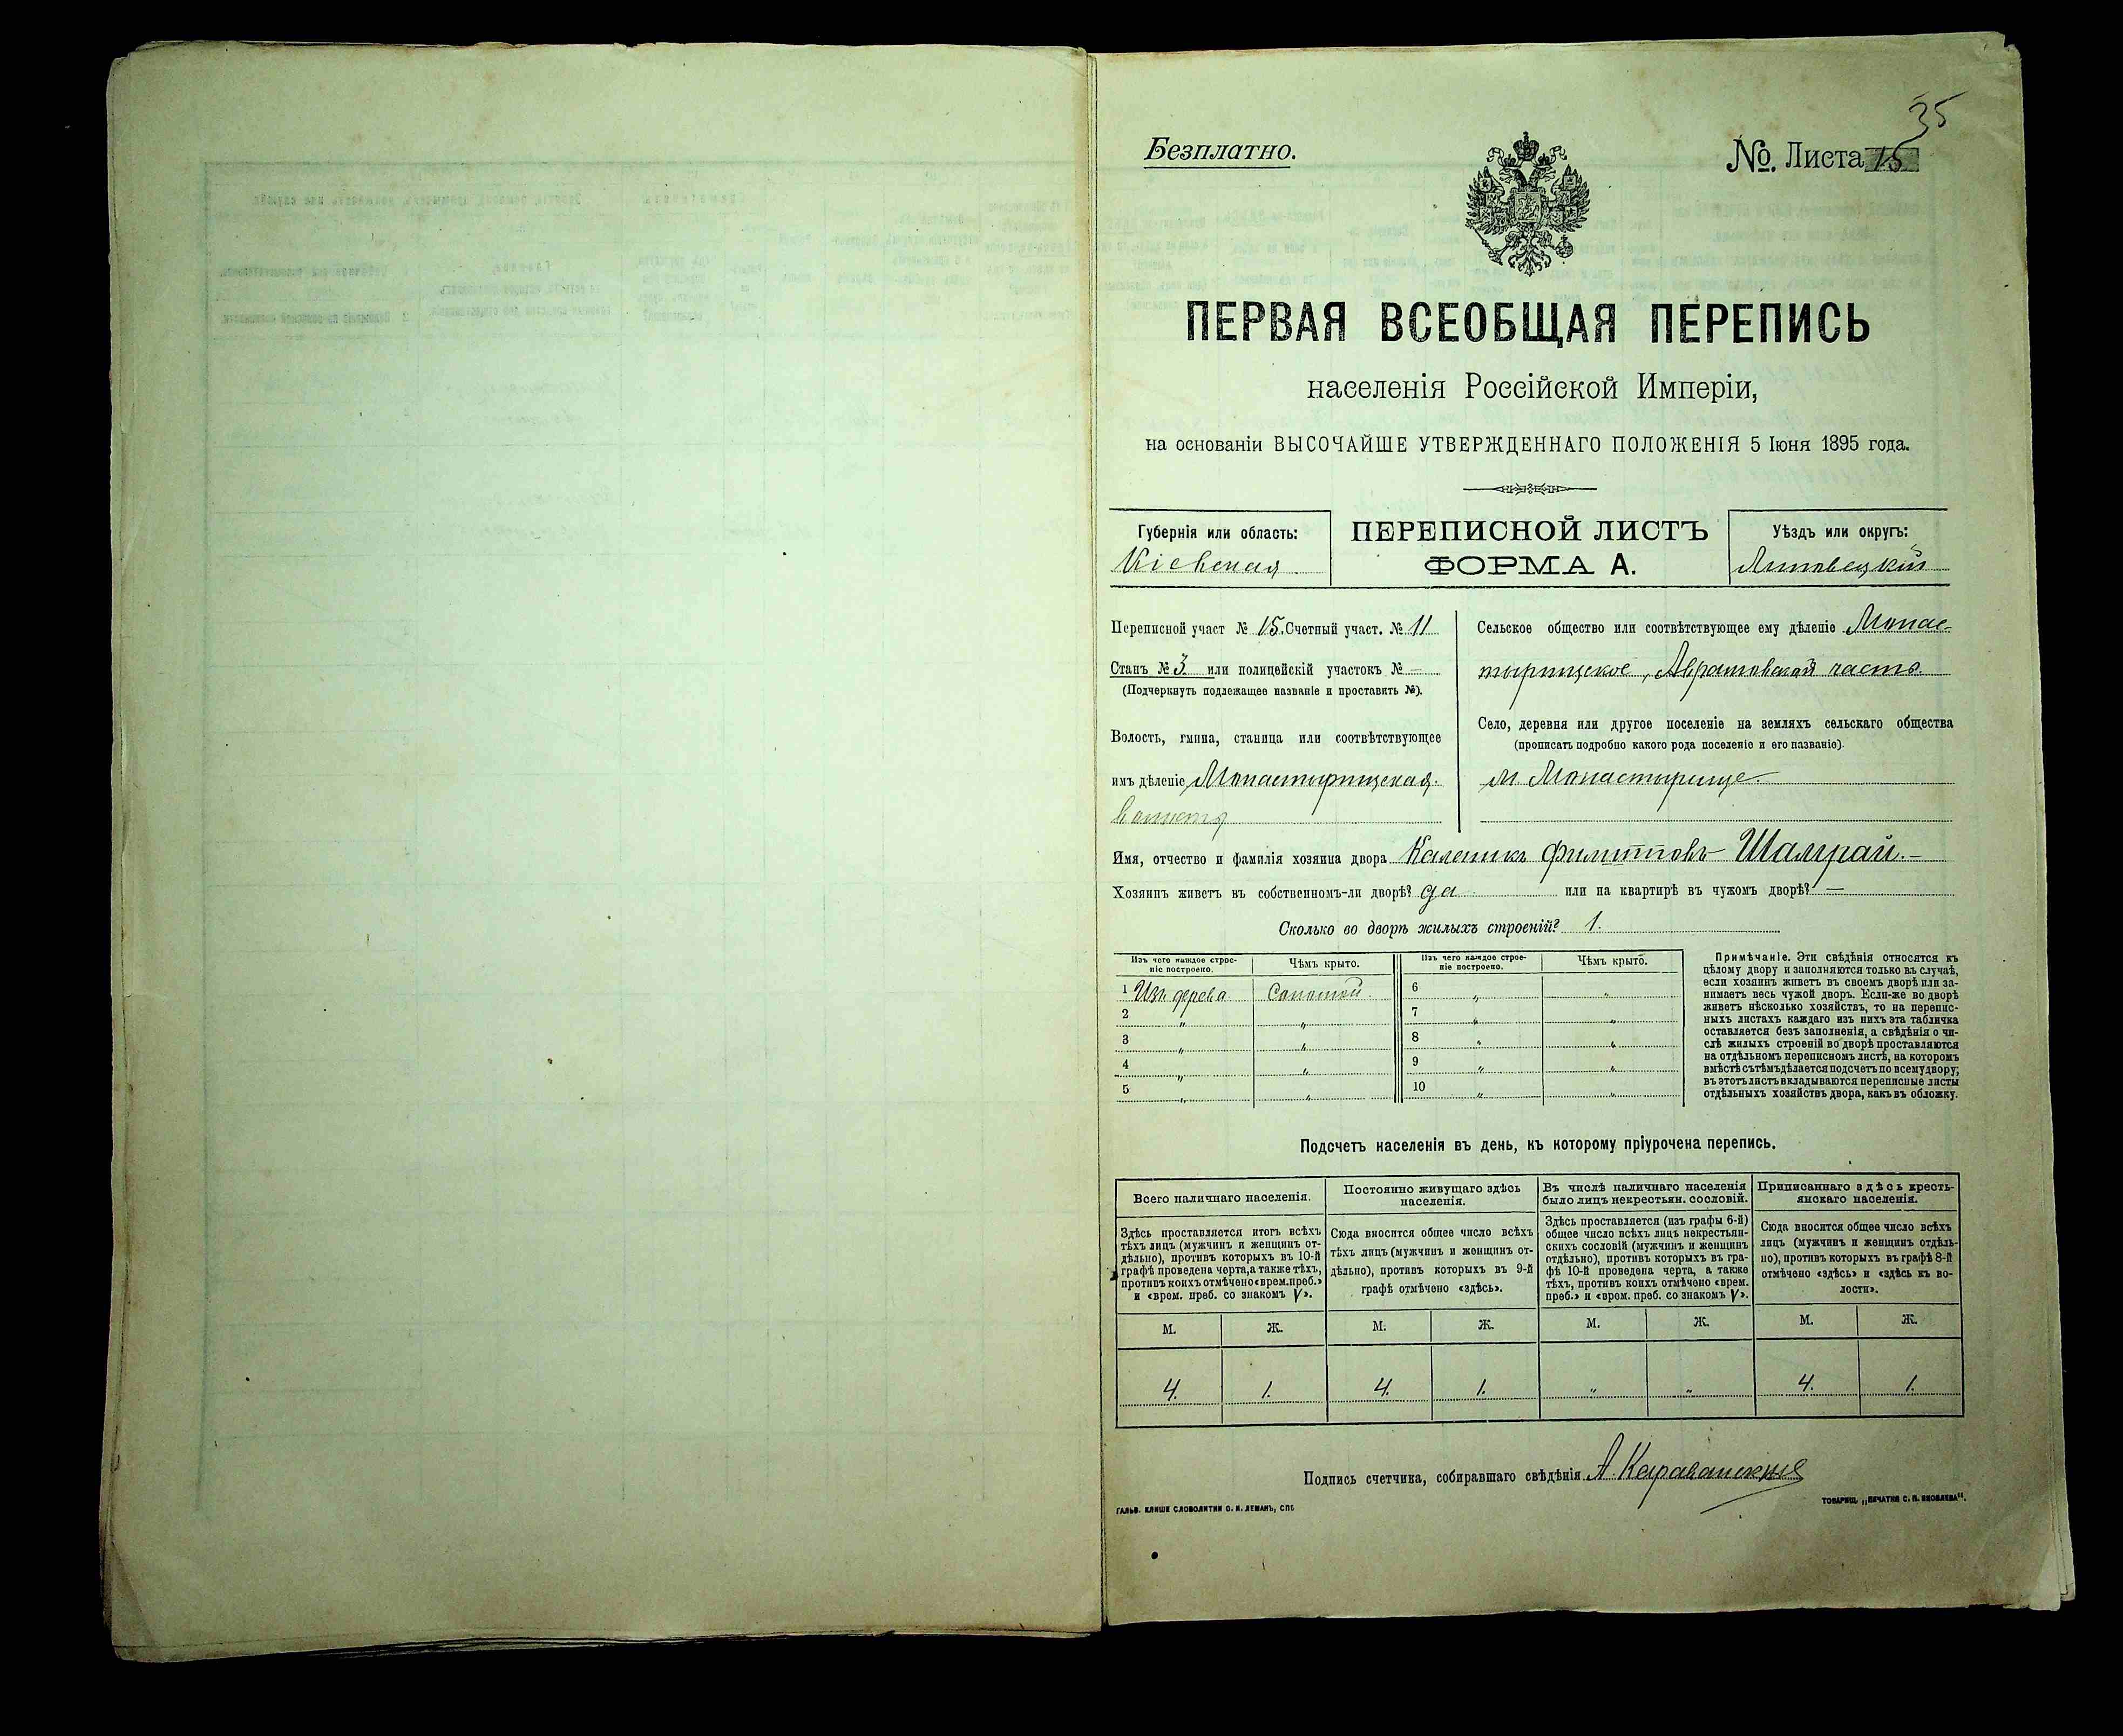 35
Безплатно.
№ Листа 15
ПЕРВАЯ ВСЕОБЩАЯ ПЕРЕПИСЬ
населенія Россійской Имперіи,
на основаніи ВЫСОЧАЙШЕ УТВЕРЖДЕННАГО ПОЛОЖЕНІЯ 5 Іюня 1895 года.
Губернія или область:
Кіевская
ПЕРЕПИСНОЙ ЛИСТЪ
ФОРМА А.
Уѣздъ или округъ:
Липовецкій
Переписной участ № 15. Счетный участ. № 11
Станъ № 3 или полицейскій участокъ № —
(Подчеркнуть подлежащее названіе и проставить №).
Волость, гмина, станица или соотвѣтствующее
имъ дѣленіе Монастырищская
волость
Сельское общество или соотвѣтствующее ему дѣленіе Монас-
тырищское, Авратовской часть.
Село, деревня или другое поселеніе на земляхъ сельскаго общества
(прописать подробно какого рода поселеніе и его названіе).
м Монастырище.
Имя, отчество и фамилія хозяина двора Каленикъ Филипповъ Шамрай. —
Хозяинъ живетъ въ собственномъ-ли дворѣ? да или на квартирѣ въ чужомъ дворѣ? —
Сколько во дворѣ жилыхъ строеній? 1.
Изъ чего каждое строе-
ніе построено.
Чѣмъ крыто.
Изъ чего каждое строе-
ніе построено.
Чѣмъ крыто.
1 Изъ дерева Соломой. 6 " "
2 " " 7 " "
3 " " 8 " "
4 " " 9 " "
5 " " 10 " "
Примѣчаніе. Эти свѣдѣнія относятся къ
цѣлому двору и заполняются только въ случаѣ,
если хозяинъ живетъ въ своемъ дворѣ или за-
нимаетъ весь чужой дворъ. Если-же во дворѣ
живетъ нѣсколько хозяйствъ, то на перепис-
ныхъ листахъ каждаго изъ нихъ эта табличка
оставляется безъ заполненія, а свѣдѣнія о чи-
слѣ жилыхъ строеній во дворѣ проставляются
на отдѣльномъ переписномъ листѣ, на которомъ
вмѣстѣ съ тѣмъ дѣлается подсчетъ по всему двору;
въ этотъ листъ вкладываются переписные листы
отдѣльныхъ хозяйствъ двора, какъ въ обложку.
Подсчетъ населенія въ день, къ которому пріурочена перепись.
Всего наличнаго населенія.
Здѣсь проставляется итогъ всѣхъ
тѣхъ лицъ (мужчинъ и женщинъ от-
дѣльно), противъ которыхъ въ 10-й
графѣ проведена черта, а также тѣхъ,
противъ коихъ отмѣчено «врем. преб.»
и «врем. преб. со знакомъ V».
Постоянно живущаго здѣсь
населенія.
Сюда вносится общее число всѣхъ
тѣхъ лицъ (мужчинъ и женщинъ от-
дѣльно), противъ которыхъ въ 9-й
графѣ отмѣчено «здѣсь».
Въ числѣ наличнаго населенія
было лицъ некрестьян. сословій.
Здѣсь проставляется (изъ графы 6-й)
общее число всѣхъ лицъ некрестьян-
скихъ сословій (мужчинъ и женщинъ
отдѣльно), противъ которыхъ въ гра-
фѣ 10-й проведена черта, а также
тѣхъ, противъ коихъ отмѣчено «врем.
преб.» и «врем. преб. со знакомъ V».
Приписаннаго здѣсь кресть-
янскаго населенія.
Сюда вносится общее число всѣхъ
лицъ (мужчинъ и женщинъ отдѣль-
но), противъ которыхъ въ графѣ 8-й
отмѣчено «здѣсь» и «здѣсь къ во-
лости».
М. Ж. М. Ж. М. Ж. М. Ж.
4. 1. 4. 1. " " 4. 1.
Подпись счетчика, собиравшаго свѣдѣнія А.
ГАЛЬВ. КЛИШЕ СЛОВОЛИТНИ О. И. ЛЕМАНЪ, СПБ.
ТОВАРИЩ. „ПЕЧАТНЯ С. П. ЯКОВЛЕВА".